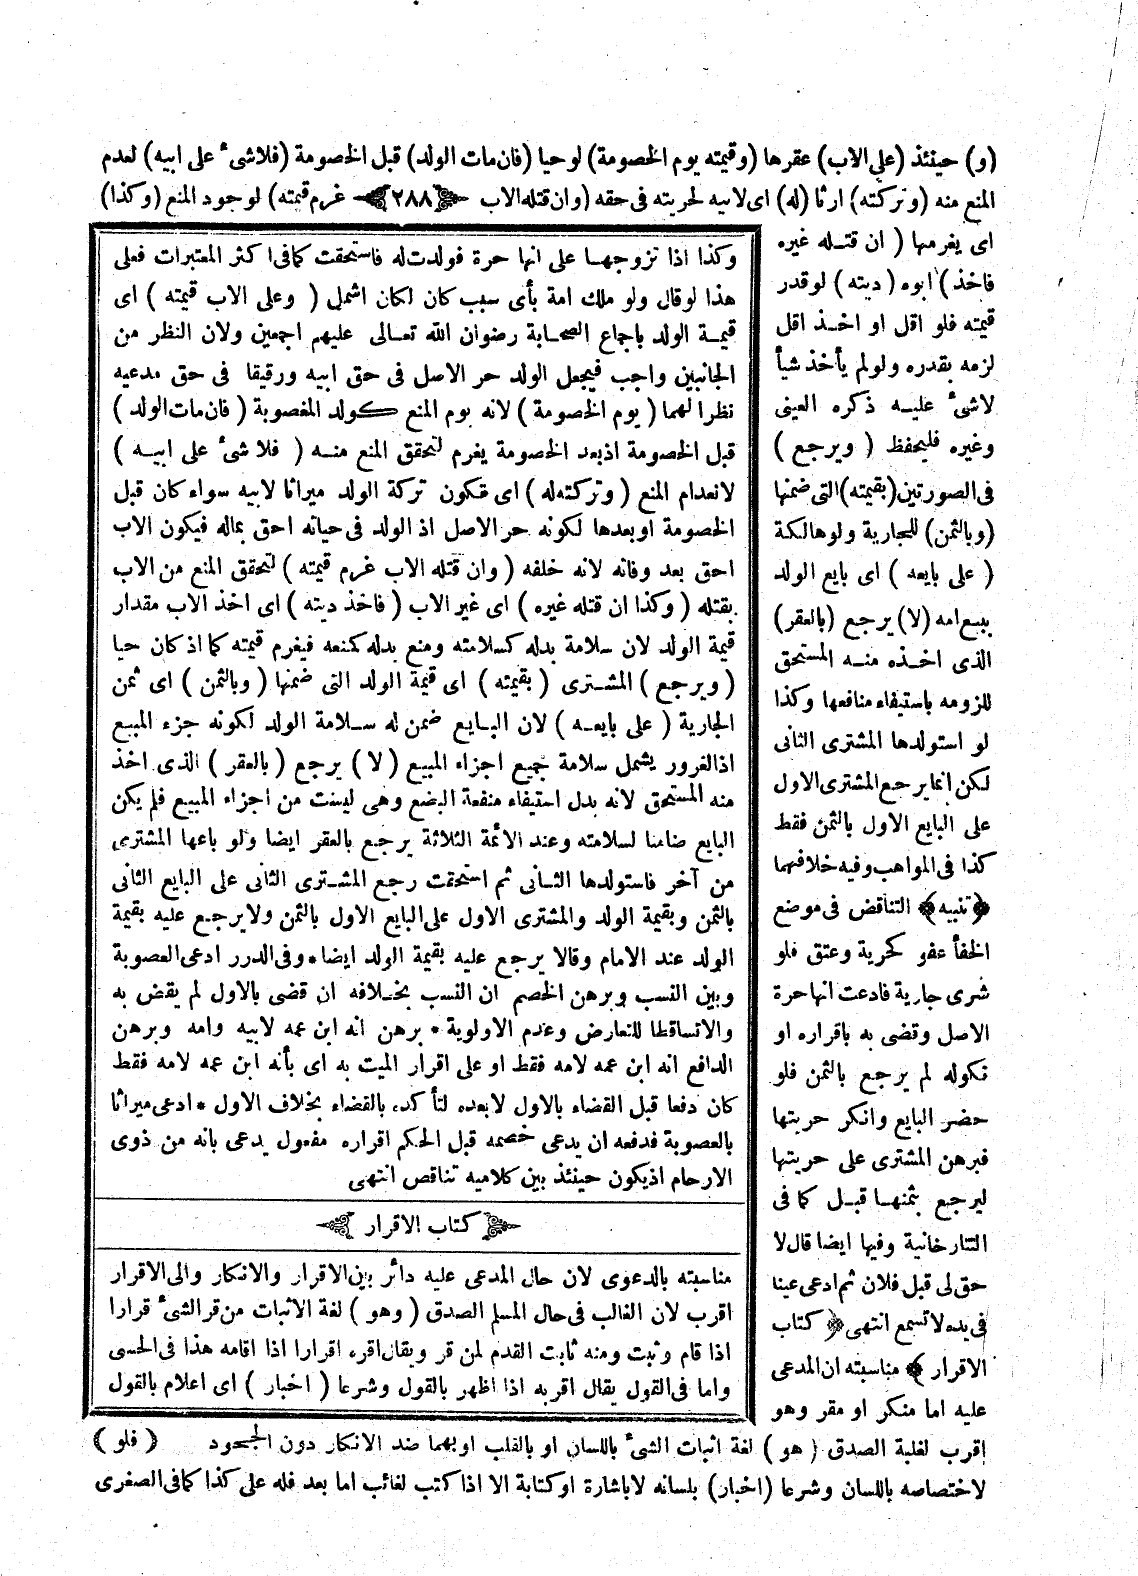 (و) حينئذ (على الاب) عقرها (وقيمته يوم الخصومة) لوحيا (فان مات الولد) قبل الخصومة (فلاشئ على ابيه) لعدم
المنع منه (وتركته) ارثا (له) اى لابيه لحريته فى حقه (وان قتله الاب ﴿٢٨٨﴾ غرم قيمته) لوجود المنع (وكذا)
اى يغرمها ( ان قتله غيره
فاخذ) ابوه (ديته) لوقدر
قيمته فلو اقل او اخذ اقل
لزمه بقدره ولولم يأخذ شيأ
لاشئ عليه ذكره العينى
وغيره فليحفظ ( ويرجع )
فى الصورتين (بقيمته) التى ضمنها
(وبالثمن) للجارية ولو هالكة
( على بايعه ) اى بايع الولد
ببيع امه (لا) يرجع (بالعقر)
الذى اخذه منه المستحق
للزومه باستيفاء منافعها وكذا
لو استولدها المشترى الثانى
لكن انما يرجع المشترى الاول
على البايع الاول بالثمن فقط
كذا فى المواهب وفيه خلافهما
﴿تنبيه﴾ التناقض فى موضع
الخفأ عفو كحرية وعتق فلو
شرى جارية فادعت انها حرة
الاصل وقضى به باقراره او
نكوله لم يرجع بالثمن فلو
حضر البايع وانكر حريتها
فبرهن المشترى على حريتها
ليرجع بثمنها قبل كما فى
التتارخانية وفيها ايضا قال لا
حق لى قبل فلان ثم ادعى عينا
فى يده لاتسمع انتهى ﴿كتاب
الاقرار﴾ مناسبته ان المدعى
عليه اما منكر او مقر وهو
اقرب لغلبة الصدق ( هو ) لغة اثبات الشئ باللسان او بالقلب اوبهما ضد الانكار دون الجحود ( فلو )
لاختصاصه باللسان وشرعا (اخبار) بلسانه لاباشارة اوكتابة الا اذا كتب لغائب اما بعد فله على كذا كما فى الصغرى
وكذا اذا تزوجها على انها حرة فولدت له فاستحقت كما فى اكثر المعتبرات فعلى
هذا لوقال ولو ملك امة بأى سبب كان لكان اشمل ( وعلى الاب قيمته ) اى
قيمة الولد باجماع الصحابة رضوان الله تعالى عليهم اجمعين ولان النظر من
الجانبين واجب فيجعل الولد حر الاصل فى حق ابيه ورقيقا فى حق مدعيه
نظرا لهما ( يوم الخصومة ) لانه يوم المنع كولد المغصوبة ( فان مات الولد )
قبل الخصومة اذبعد الخصومة يغرم لتحقق المنع منه ( فلا شئ على ابيه )
لانعدام المنع ( وتركته له ) اى تكون تركة الولد ميراثا لابيه سواء كان قبل
الخصومة اوبعدها لكونه حر الاصل اذ الولد فى حياته احق بماله فيكون الاب
احق بعد وفاته لانه خلفه ( وان قتله الاب غرم قيمته ) لتحقق المنع من الاب
بقتله ( وكذا ان قتله غيره ) اى غير الاب ( فاخذ ديته ) اى اخذ الاب مقدار
قيمة الولد لان سلامة بدله كسلامته ومنع بدله كمنعه فيغرم قيمته كما اذ كان حيا
( ويرجع ) المشترى ( بقيمته ) اى قيمة الولد التى ضمنها ( وبالثمن ) اى ثمن
الجارية ( على بايعه ) لان البايع ضمن له سلامة الولد لكونه جزء المبيع
اذالغرور يشمل سلامة جميع اجزاء المبيع ( لا ) يرجع ( بالعقر ) الذى اخذ
منه المستحق لانه بدل استيفاء منفعة البضع وهى ليست من اجزاء المبيع فلم يكن
البايع ضامنا لسلامته وعند الأئمة الثلاثة يرجع بالعقر ايضا ولو باعها المشترى
من آخر فاستولدها الثانى ثم استحقت رجع المشترى الثانى على البايع الثانى
بالثمن وبقيمة الولد والمشترى الاول على البايع الاول بالثمن ولايرجع عليه بقيمة
الولد عند الامام وقالا يرجع عليه بقيمة الولد ايضا * وفى الدرر ادعى العصوبة
وبين النسب وبرهن الخصم ان النسب بخلافه ان قضى بالاول لم يقض به
والاتساقطا للتعارض وعدم الاولوية * برهن انه ابن عمه لابيه وامه وبرهن
الدافع انه ابن عمه لامه فقط او على اقرار الميت به اى بأنه ابن عمه لامه فقط
كان دفعا قبل القضاء بالاول لابعده لتأكده بالقضاء بخلاف الاول * ادعى ميراثا
بالعصوبة فدفعه ان يدعى خصمه قبل الحكم اقراره مفعول يدعى بانه من ذوى
الارحام اذيكون حينئذ بين كلاميه تناقص انتهى
﴿كتاب الاقرار﴾
مناسبته بالدعوى لان حال المدعى عليه دائر بين الاقرار والانكار والى الاقرار
اقرب لان الغالب فى حال المسلم الصدق ( وهو ) لغة الاثبات من قر الشئ قرارا
اذا قام وثبت ومنه ثابت القدم لمن قر ويقال اقره اقرارا اذا اقامه هذا فى الحسى
واما فى القول يقال اقربه اذا اظهر بالقول وشرعا ( اخبار ) اى اعلام بالقول